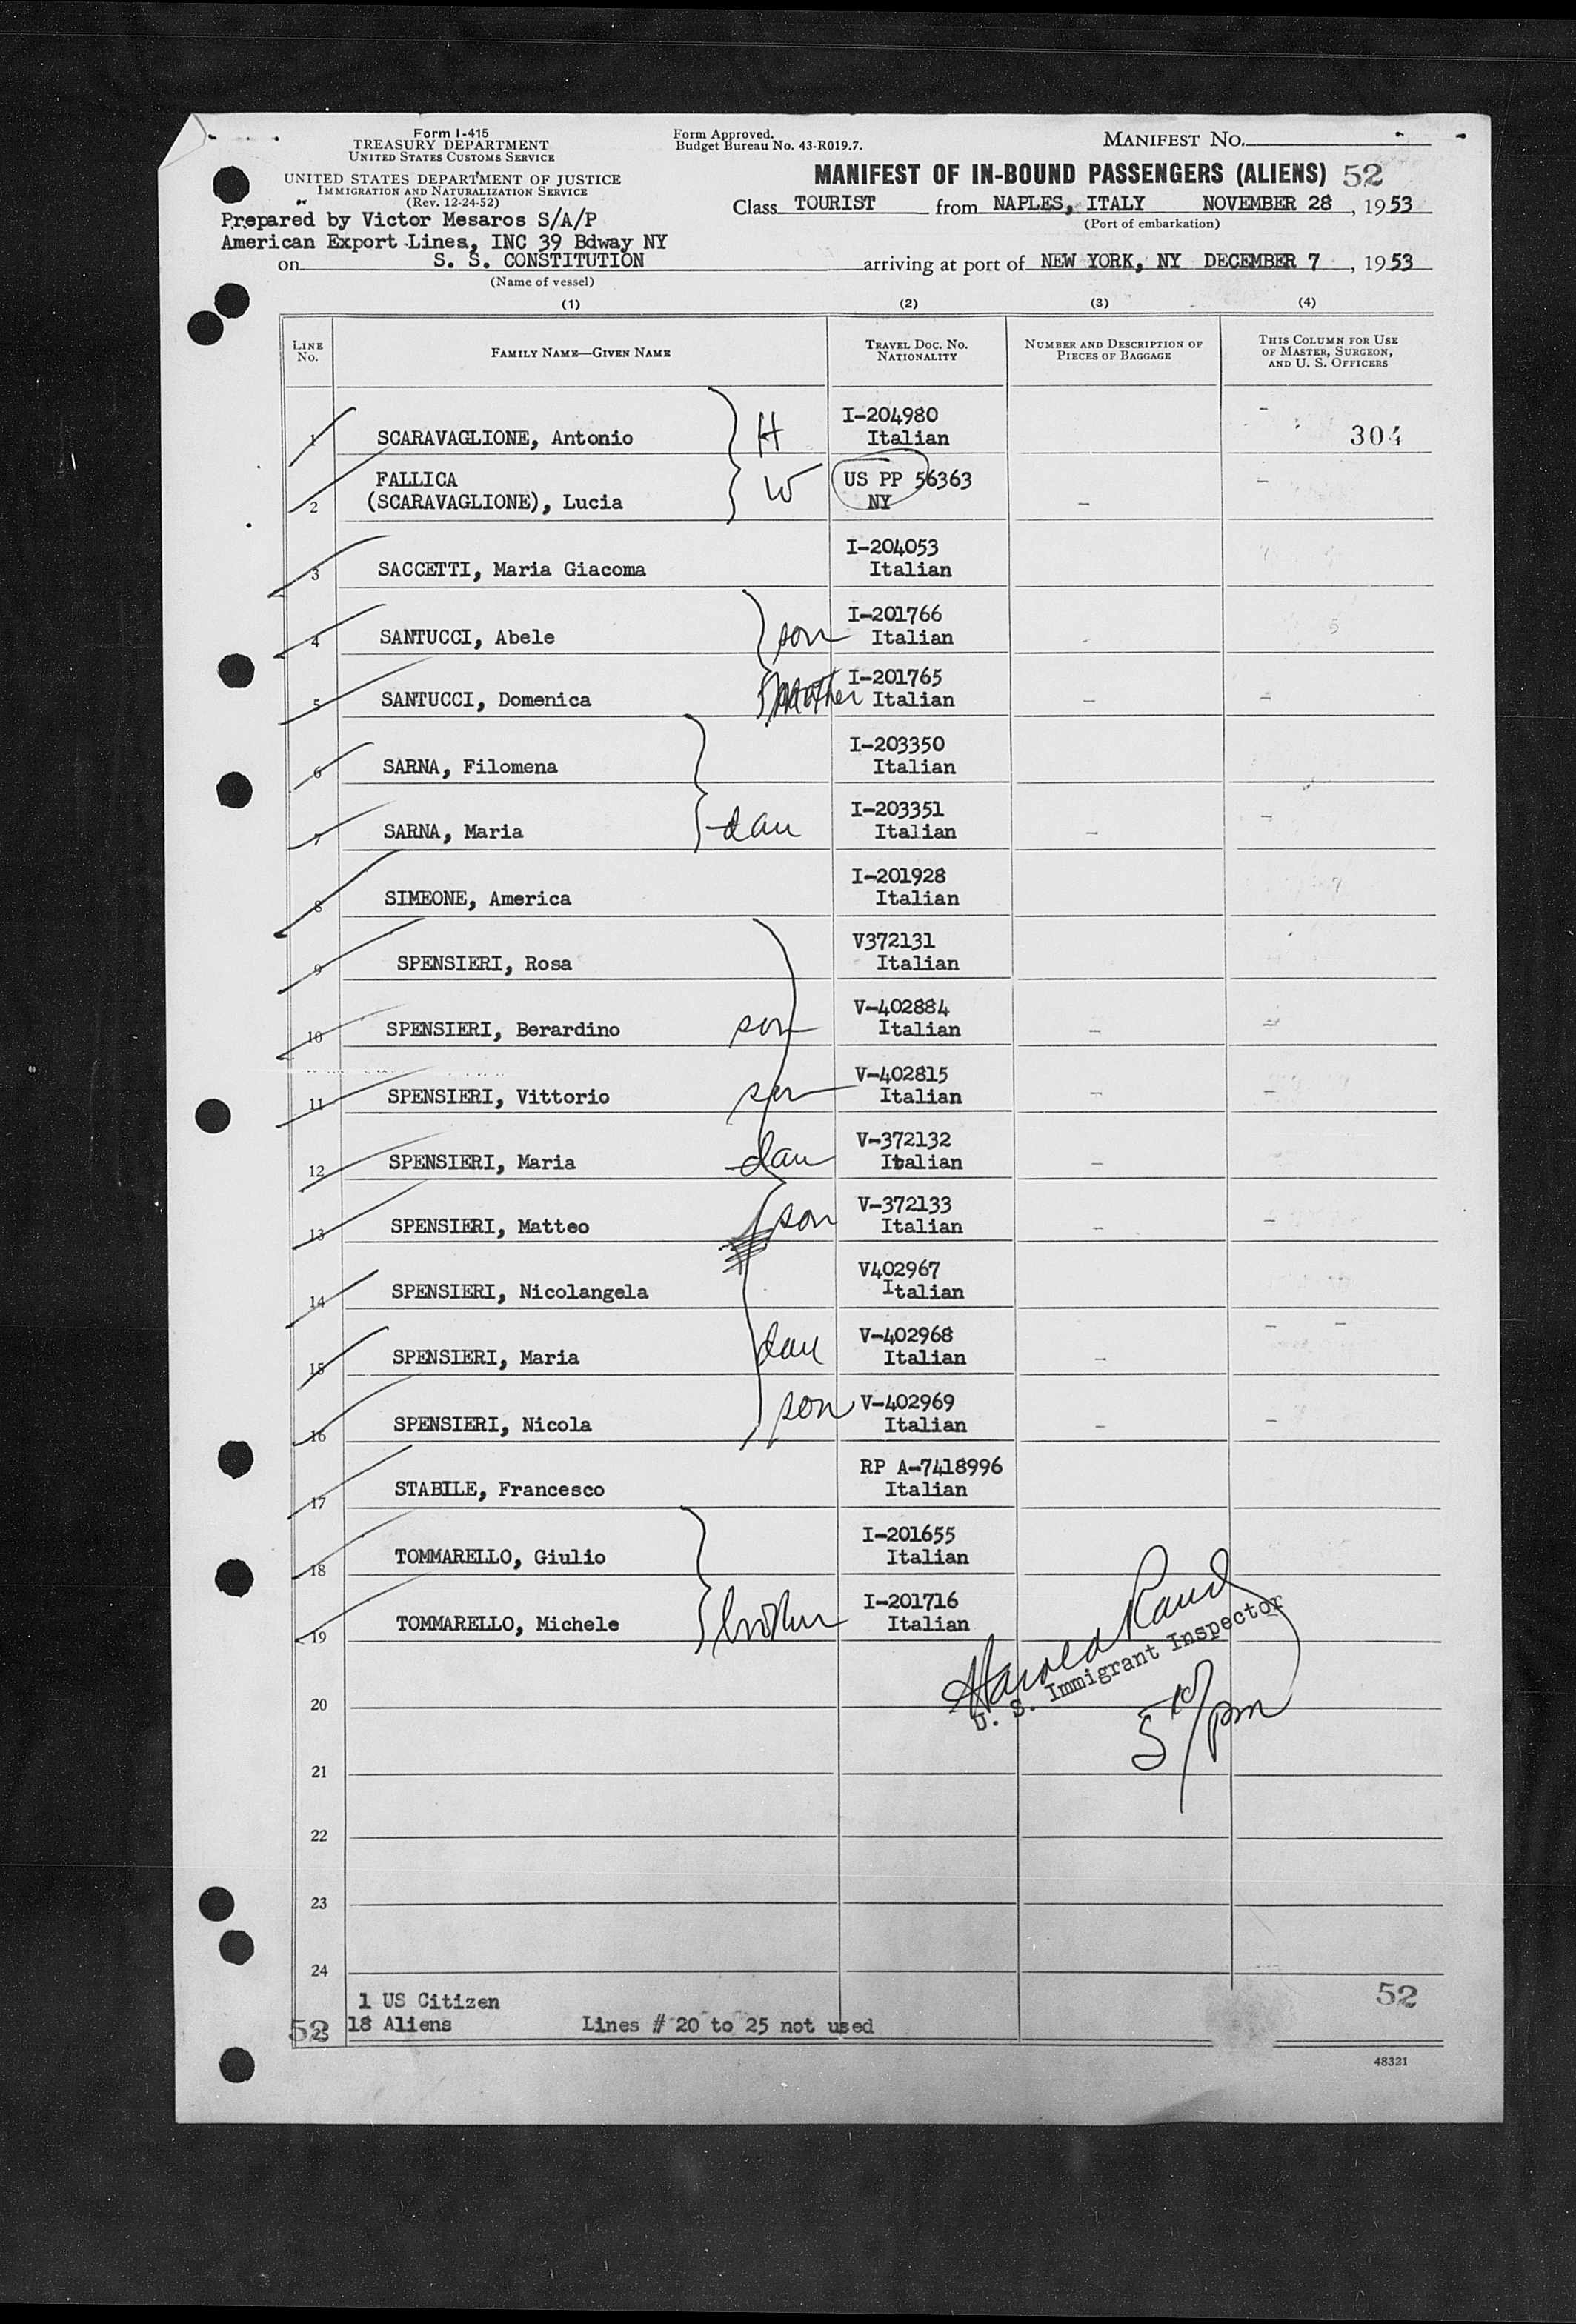 Form I-415
TREASURY DEPARTMENT
UNITED STATES CUSTOMS SERVICE
UNITED STATES DEPARTMENT OF JUSTICE
IMMIGRATION AND NATURALIZATION SERVICE
(Rev. 12-24-52)
Form Approved.
Budget Bureau No. 43-R019.7.
MANIFEST No.
MANIFEST OF IN-BOUND PASSENGERS (ALIENS) 52
Class TOURIST from NAPLES, ITALY NOVEMBER 28, 1953
(Port of embarkation)
Prepared by Victor Mesaros S/A/P
American Export Lines, INC 39 Bdway NY
on S. S. CONSTITUTION arriving at port of NEW YORK, NY DECEMBER 7, 1953
(Name of vessel)
(1) (2) (3) (4)
LINE No. FAMILY NAME—GIVEN NAME TRAVEL DOC. NO. NATIONALITY NUMBER AND DESCRIPTION OF PIECES OF BAGGAGE THIS COLUMN FOR USE OF MASTER, SURGEON, AND U. S. OFFICERS
1 SCARAVAGLIONE, Antonio H I-204980 Italian 304
2 FALLICA (SCARAVAGLIONE), Lucia W US PP 56363 NY
3 SACCETTI, Maria Giacoma I-204053 Italian
4 SANTUCCI, Abele son I-201766 Italian
5 SANTUCCI, Domenica Mother I-201765 Italian
6 SARNA, Filomena I-203350 Italian
7 SARNA, Maria dau I-203351 Italian
8 SIMEONE, America I-201928 Italian
9 SPENSIERI, Rosa V372131 Italian
10 SPENSIERI, Berardino son V-402884 Italian
11 SPENSIERI, Vittorio son V-402815 Italian
12 SPENSIERI, Maria dau V-372132 Italian
13 SPENSIERI, Matteo son V-372133 Italian
14 SPENSIERI, Nicolangela V402967 Italian
15 SPENSIERI, Maria dau V-402968 Italian
16 SPENSIERI, Nicola son V-402969 Italian
17 STABILE, Francesco RP A-7418996 Italian
18 TOMMARELLO, Giulio I-201655 Italian
19 TOMMARELLO, Michele brother I-201716 Italian
Harold Rand
U. S. Immigrant Inspector
20
5 10/pm
21
22
23
24
1 US Citizen
52
52 25 18 Aliens Lines # 20 to 25 not used
48321